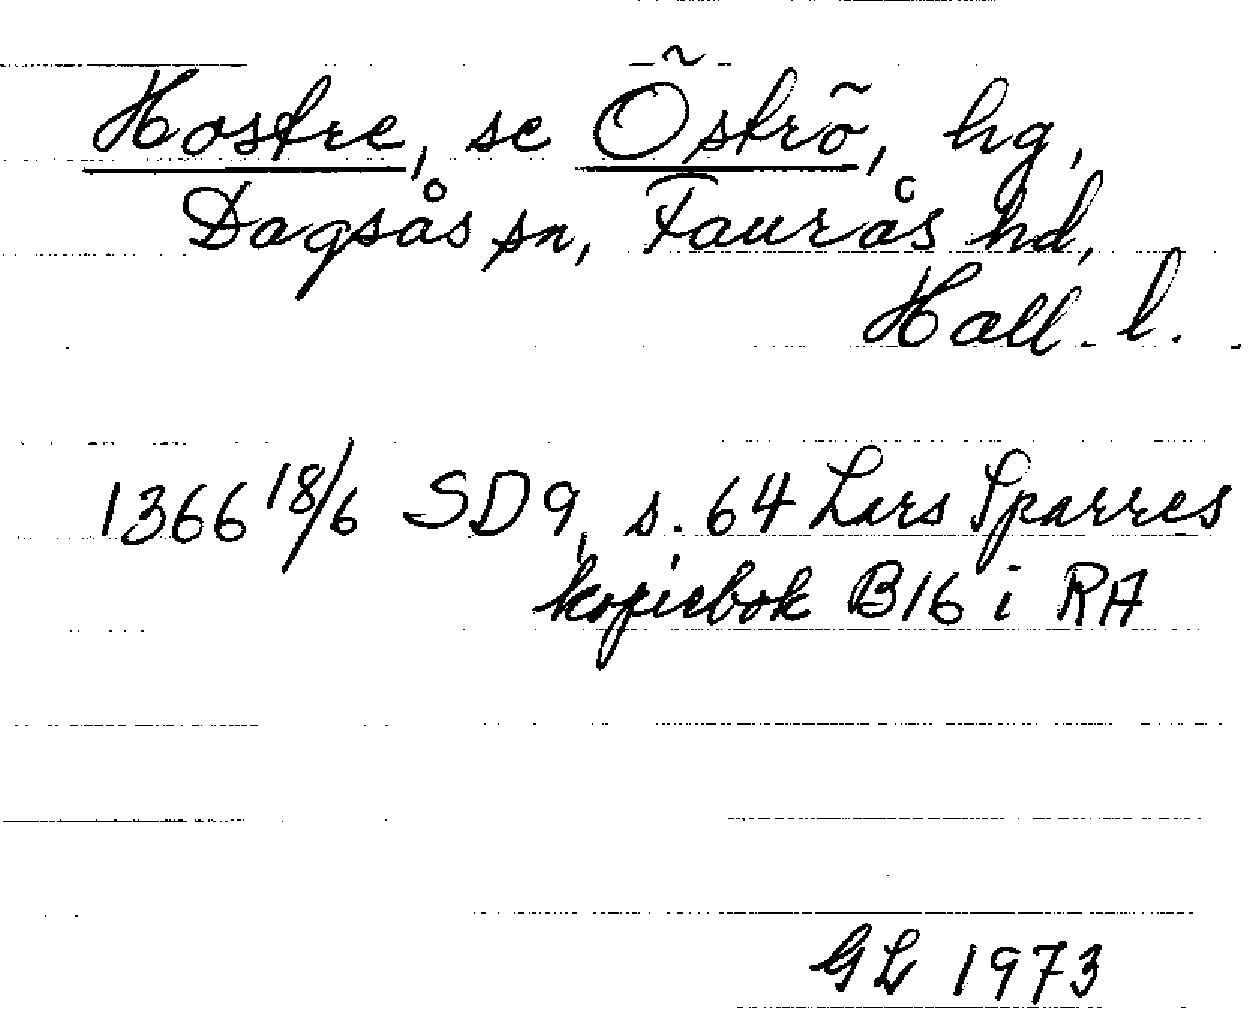 Hostre, se Öströ, hg,
Dagsås sn, Faurås hd,
Hall. l.
1366 18/6 SD9, s. 64 Lars Sparres
kopiebok B16 i RA
GL 1973